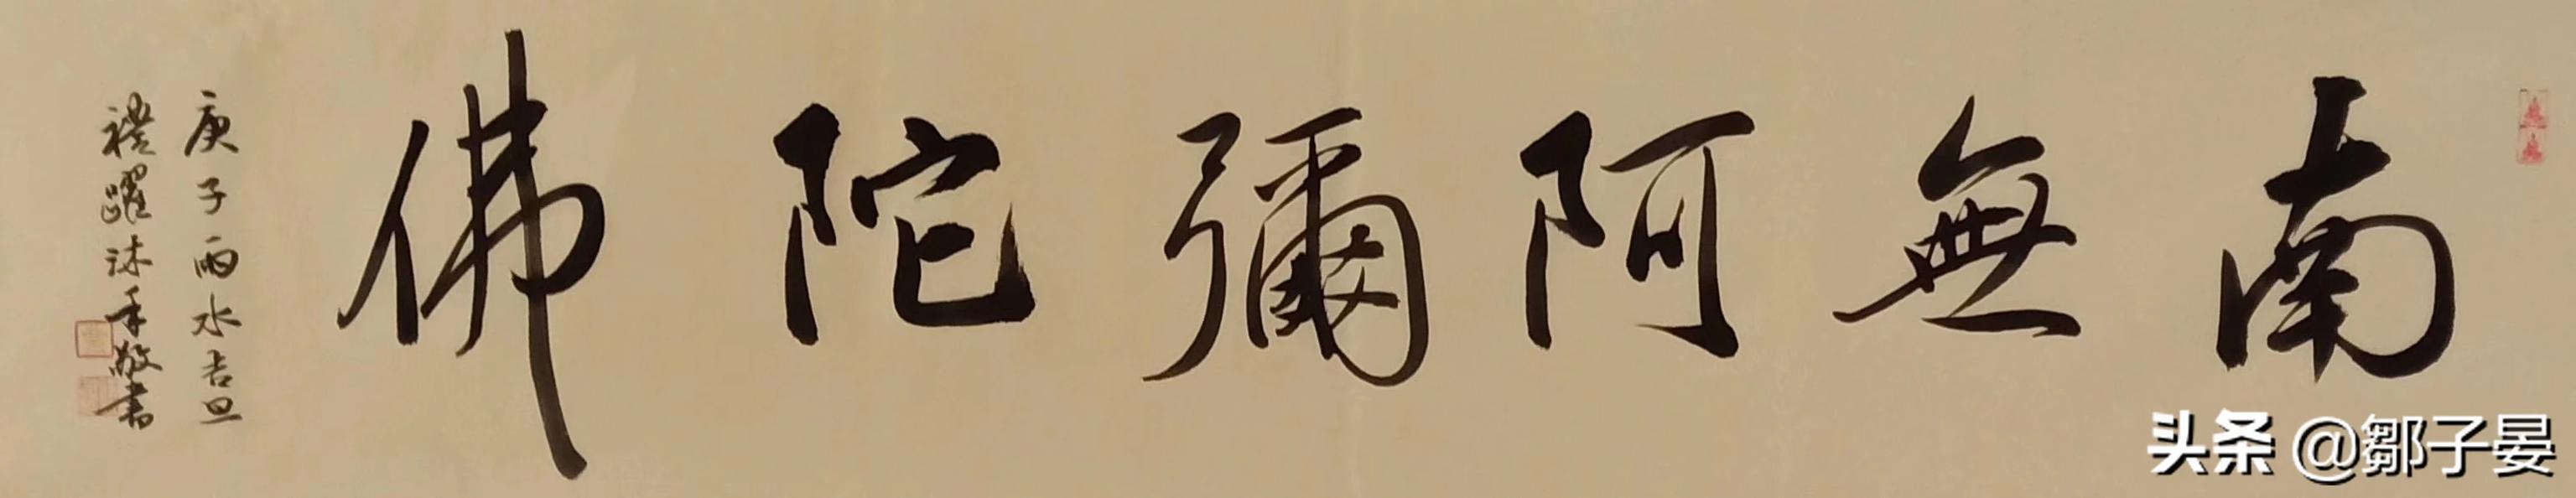 南無阿彌陀佛
庚子雨水吉旦
禮躍沐手敬書
头条 @鄒子晏